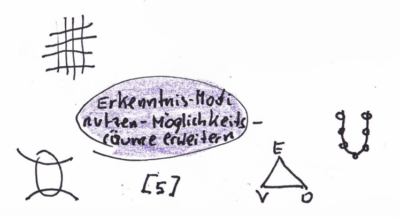 Erkenntnis-Modi
nutzen-Möglichkeits-
räume erweitern
E
V O
[5]